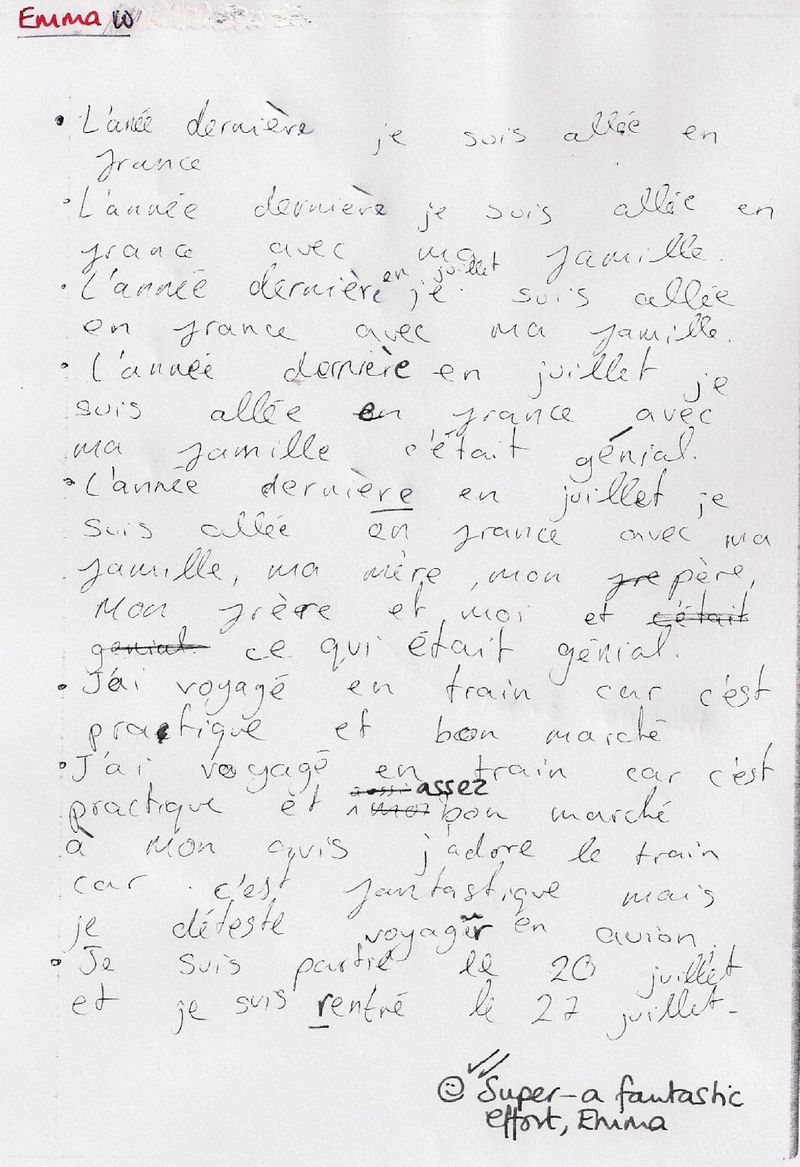 Emma W
• L'anée dernière je suis allée en
france
• L'année dernière je suis allée en
france avec ma famille.
en juillet
• L'année dernière je suis allée
en france avec ma famille.
• L'année dernière en juillet je
suis allée en france avec
ma famille c'était génial.
• L'année dernière en juillet je
suis allée en france avec ma
famille, ma mère, mon fre père,
mon frère et moi et c'était
genial ce qui était génial.
• J'ai voyagé en train car c'est
practique et bon marché
• J'ai voyagé en train car c'est
aussi assez
practique et bon marché
à mon avis j'adore le train
car c'est fantastique mais
je déteste voyager en avion.
• Je suis partie le 20 juillet
et je suis rentré le 27 juillet.
Super - a fantastic
effort, Emma